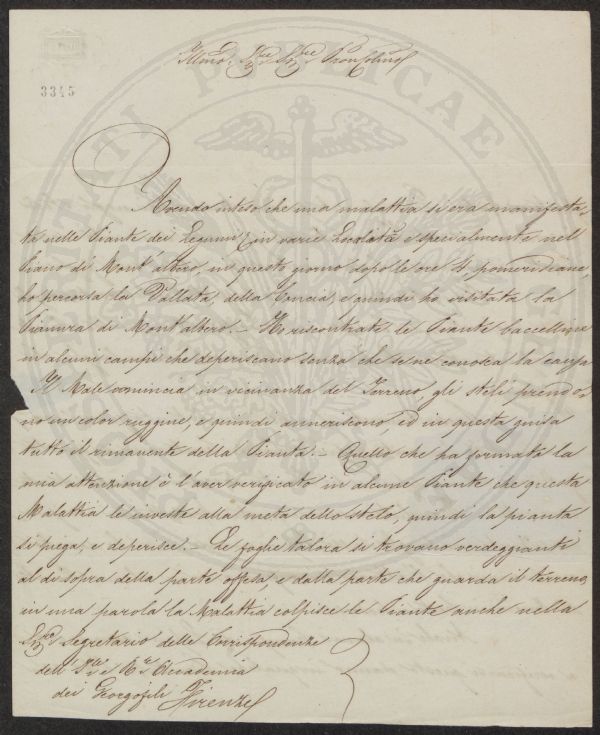 Illmo. Sre. Sre. Pron. Colmo.
3345
Avendo inteso che una malattia si era manifesta-
ta nelle Piante dei Legumi in varie Località e specialmente nel
Piano di Mont'albero, in questo giorno dopo le ore 4. pomeridiane,
ho percorsa la Vallata, della e quindi ho visitata la
Pianura di Mont'albero. – Ho riscontrate le Piante baccelline
in alcuni campi che deperiscano senza che se ne conosca la causa
Il Male comincia in vicinanza del Terreno, gli steli prendo-
no un color ruggine, e quindi anneriscono, ed in questa guisa
tutto il rimanente della Pianta. – Quello che ha fermata la
mia attenzione è l'aver verificato in alcune Piante che questa
Malattia le investe alla metà dello stelo, quindi la pianta
si piega, e deperisce. – Le foglie talora si trovano verdeggianti
al di sopra della parte offesa e dalla parte che guarda il terreno,
in una parola la Malattia colpisce le Piante anche nella
Segretario delle Corrispondenze
dell' I. e R. Accademia
dei Georgofili Firenze